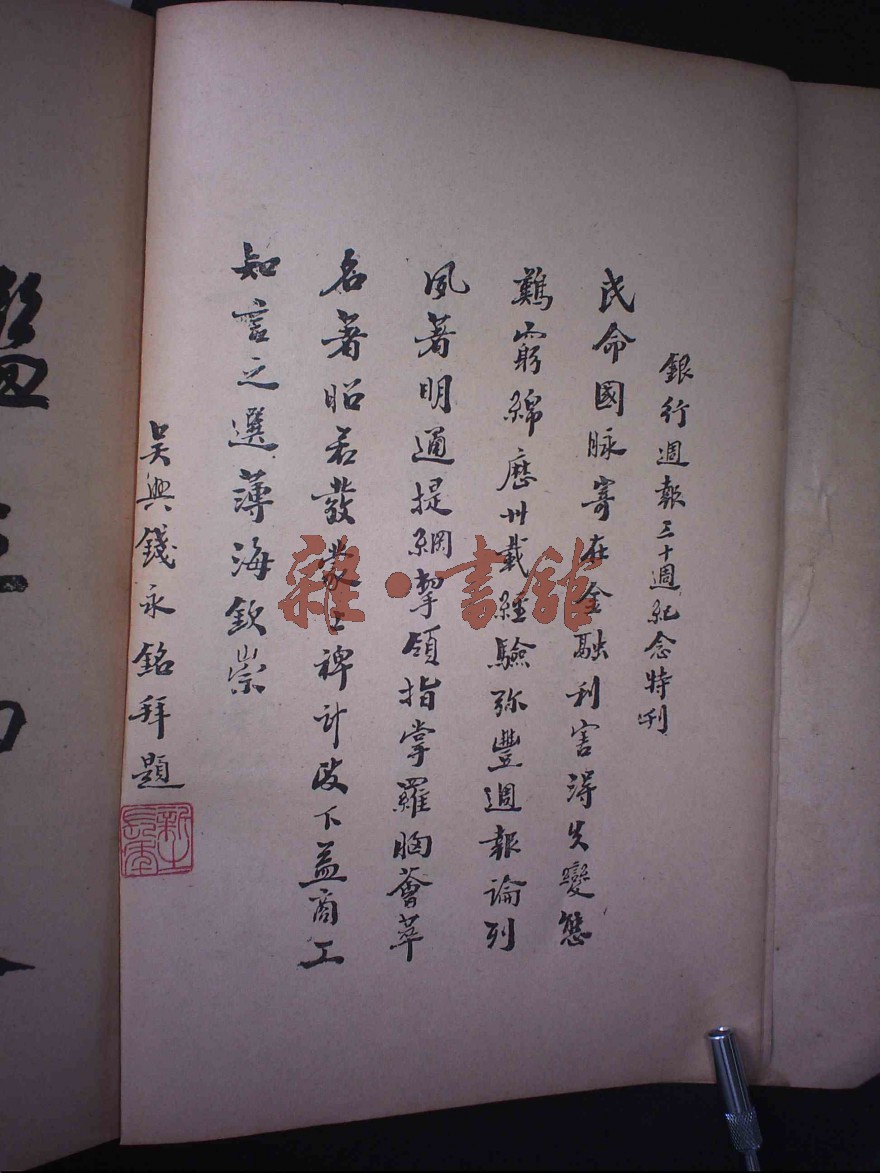 銀行週報三十週紀念特刊
民命國脉寄在金融利害得失變態
難窮綿歷卅載經驗弥豐週報論列
夙著明通提綱挈領指掌羅胸薈萃
名著昭若發蒙上裨計政下益商工
知言之選薄海欽崇
吳興錢永銘拜題
新之
雜·書館